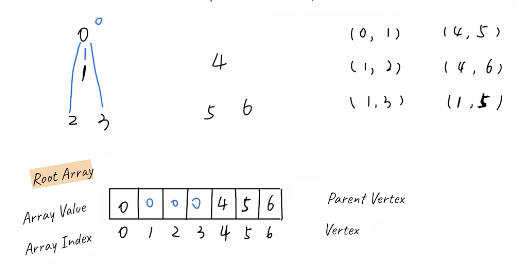 0 0
1
2 3
4
5 6
(0, 1) (4, 5)
(1, 2) (4, 6)
(1, 3) (1, 5)
Root Array
Array Value 0 0 0 0 4 5 6 Parent Vertex
Array Index 0 1 2 3 4 5 6 Vertex